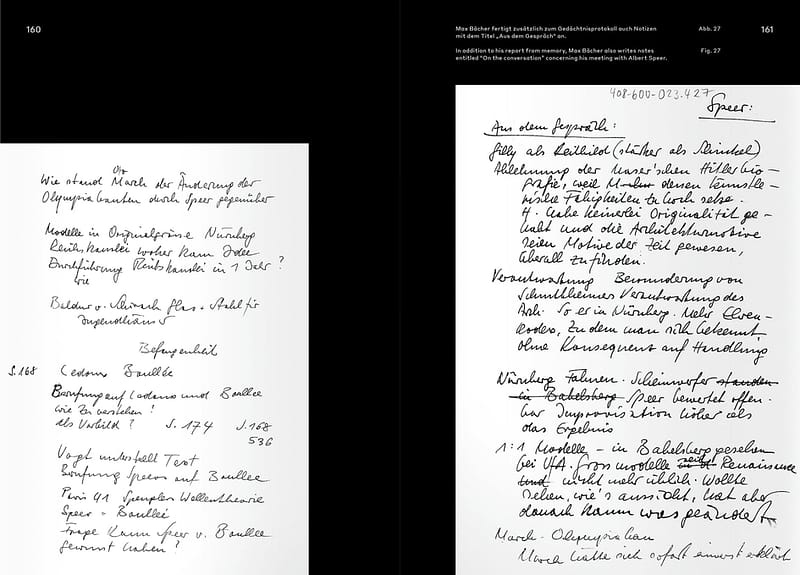 160
Otto
Wie stand March der Änderung der
Olympiabauten durch Speer gegenüber
Modelle in Originalgrösse Nürnberg
Reichskanzlei woher kam Idee
Durchführung Reichskanzlei in 1 Jahr ?
wie
Baldur v. Schirach Glas + Stahl für
Jugendhäuser
Befangenheit
S. 168 Ledoux Boullée
Berufung auf Ledoux und Boullee
wie zu verstehen !
als Vorbild ? S. 174 S. 168
536
Vogt unterstellt Text
Berufung Speers auf Boullee
Paris 41 Wellentheorie
Speer = Boullée
Frage kann Speer v. Boullee
gewusst haben ?
Max Bächer fertigt zusätzlich zum Gedächtnisprotokoll auch Notizen
mit dem Titel „Aus dem Gespräch“ an.
Abb. 27
161
In addition to his report from memory, Max Bächer also writes notes
entitled “On the conversation” concerning his meeting with Albert Speer.
Fig. 27
408-600-023.427
Speer:
Aus dem Gespräch:
Gilly als Leitbild (stärker als Schinkel)
Ablehnung der Maser'schen Hitlerbio-
grafie, weil dessen künstle-
rische Fähigkeiten zu hoch setze.
H. habe keinerlei Originalität ge-
habt und die Architekturmotive
seien Motive der Zeit gewesen,
überall zu finden.
Verantwortung Bewunderung von
Schmitthenners Verantwortung des
Arch. So er in Nürnberg. Mehr Ehren-
kodex, zu dem man sich bekennt
ohne Konsequenz auf Handlung
Nürnberg Fahnen. Scheinwerfer standen
in Babelsberg Speer bewertet offen-
bar Improvisation höher als
das Ergebnis
1:1 Modelle – in Babelsberg gesehen
bei UFA. Grossmodelle seit Renaissance
und nicht mehr üblich. Wollte
sehen, wie's aussieht, hat aber
danach kaum was geändert
March - Olympiabau
March hätte sich sofort einverst erklärt